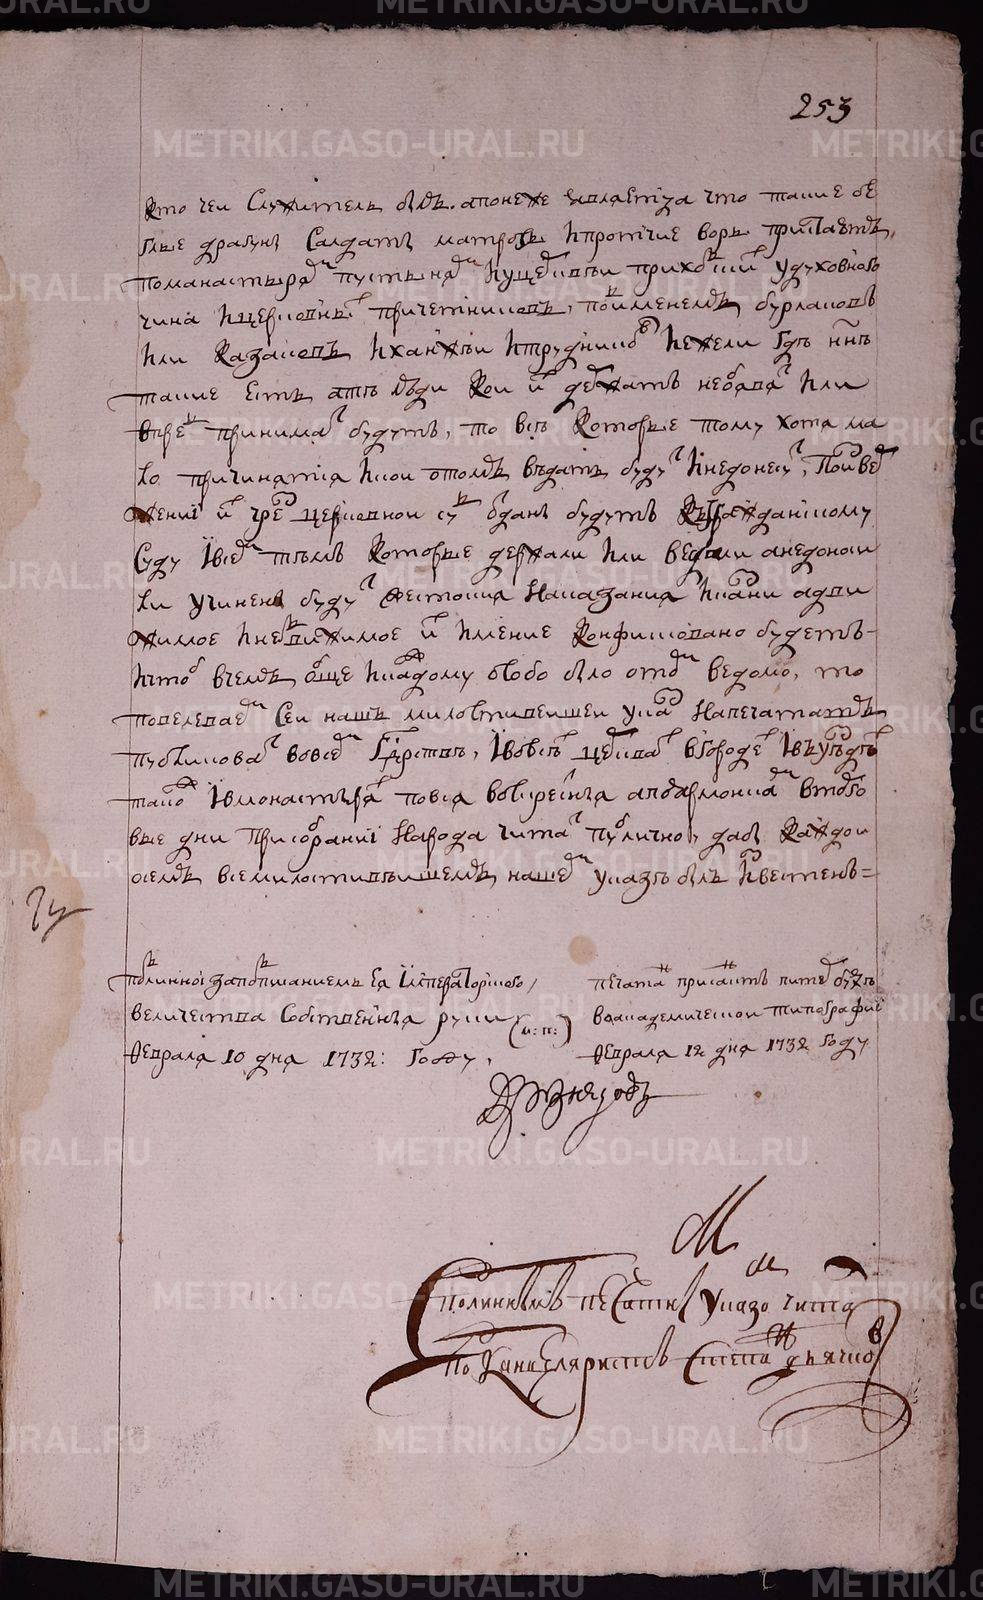 METRIKI.GASO-URAL.RU
253
кто чеи служитель былъ. апонеже являетца что такие бе
глые драгуны салдаты матрозы ипротчие воры пристаютъ
поманастырям пустыням ицерквеи приходцких удуховного
чина ицерковных причетниковъ, поименемъ бурлаковъ
или казаковъ иханжеи итрудников ... нежели где ннѣ
такие есть ... люди кои их держатъ необявят или
впредь принимат будутъ, то всѣ которые тому хотя ма
ло причинатца икои отомъ ведать будут инедонесут, поизвер
жении их чрез церковнои суд отданы будутъ кгражданскому
суду ивсем тѣмъ которые держали или ведали анедонош
ли учинены будут жестокия наказания ... дви
жимое инедвижимое их имение конфисковано будетъ
ичтоб вчемъ обще икаждому особо было отом ведомо, то
повелеваем сеи нашъ милостивеишеи указ напечатавъ
публиковат вовсем государствѣ, ивовсѣх церквах вгороде ивъуѣздѣх
також ивмонастырях повся воскресныя агосподския втабо
вые дни присобрании народа читат публично, дабы каждои
осемъ всемилостивѣишемъ нашем указѣ былъ известенъ=
подлиннои заподписанием Ея Императорского
величества собственныя руки (м: п:)
Февраля 10 дня 1732: году,
печатан присанктъ питербурхѣ
воакадемическои типографии
Февраля 12 дня 1732 году
Сполиннымъ печатны указо читал
Подканцеляристъ Степан дьячков